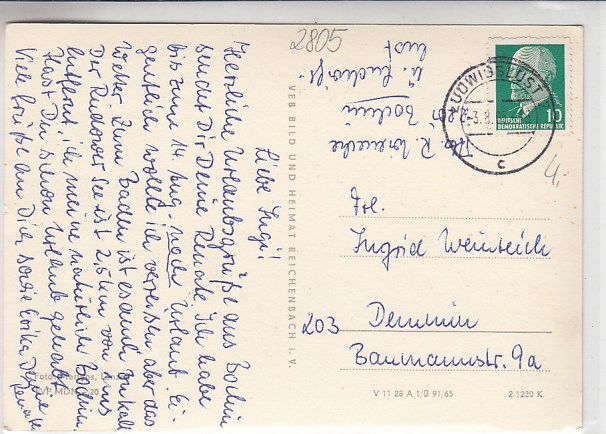 Liebe Ingi!
Herzliche Urlaubsgrüße aus Bochin
sendet Dir Deine Renate. Ich habe
bis zum 14. Aug. noch Urlaub. Ei-
gentlich wollte ich verreisen aber das
Wetter zum Baden ist es auch zu kalt.
Der Rudower See ist 2,5 km von uns
entfernt. ich meine natürlich Bochin
Hast Du schon Urlaub gehabt?
Viele Grüße an Dich sowie Erika Deine
Renate
VEB BILD UND HEIMAT REICHENBACH I. V.
2805
R.
2801 Bochin
ü. Ludwigs-
lust
LUDWIGSLUST
-3.8.
c
10
DEUTSCHE
DEMOKRATISCHE REPUBLIK
4,-
Frl.
Ingrid Weinreich
203 Demmin
Baumannstr. 9a
V 11 28 A 1/B 91/65
2/1230 K